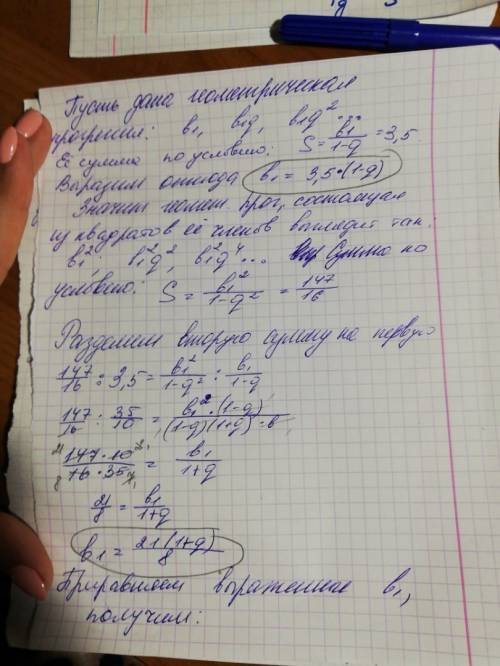 Пусть дана геометрическая
прогрессия: b₁, b₁q, b₁q² ...
Её сумма по условию: S = b₁/(1-q) = 3,5
Выразим отсюда b₁ = 3,5·(1-q)
Значит геомет. прог, состоящая
из квадратов её членов выглядит так:
b₁²; b₁²q², b₁²q⁴... Сумма по
условию: S = b₁²/(1-q²) = 147/16
Разделим вторую сумму на первую
147/16 : 3,5 = b₁²/(1-q²) : b₁/(1-q)
147/16 : 35/10 = b₁²·(1-q)/(1-q)(1+q)·b
147·10/16·35 = b₁/(1+q)
21/8 = b₁/(1+q)
b₁ = 21(1+q)/8
Приравняем выраженное b₁,
получим: